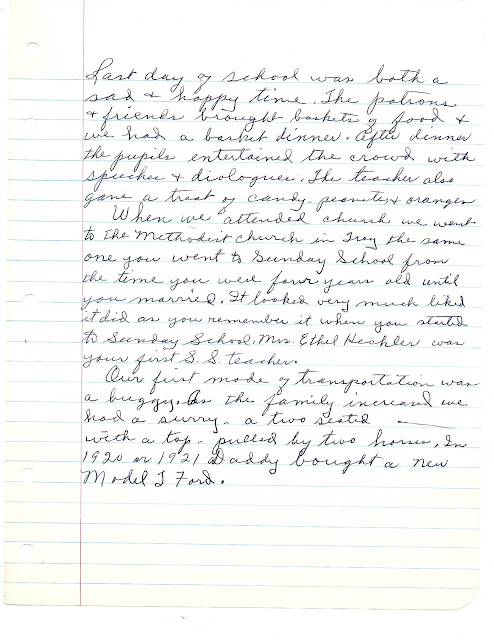 Last day of school was both a
sad & happy time. The patrons
& friends brought baskets of food &
we had a basket dinner. After dinner
the pupils entertained the crowd with
speeches & diologues. The teacher also
gave a treat of candy peanuts & oranges
When we attended church we went
to the Methodist Church in Troy the same
one you went to Sunday School from
the time you were four years old until
you married. It looked very much liked
it did as you remember it when you started
to Sunday School. Mrs. Ethel Heckler was
your first S. S. teacher.
Our first mode of transportation was
a buggy. As the family increased we
had a surry - a two seated
with a top - pulled by two horses. In
1920 or 1921 Daddy bought a new
Model T Ford.